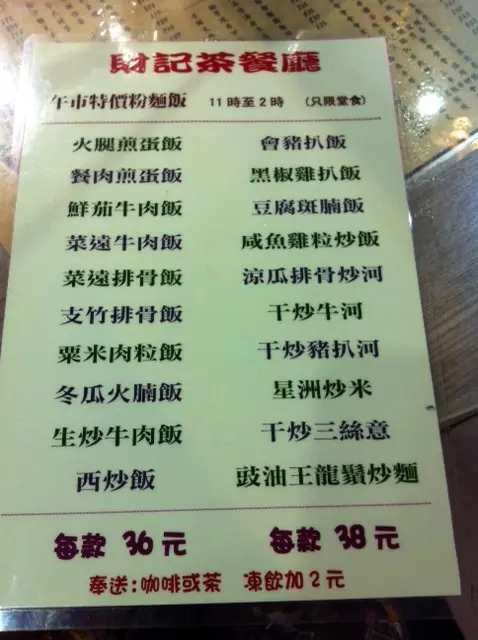 財記茶餐廳
午市特價粉麵飯 11時至2時 (只限堂食)
火腿煎蛋飯 會豬扒飯
餐肉煎蛋飯 黑椒雞扒飯
鮮茄牛肉飯 豆腐斑腩飯
菜遠牛肉飯 咸魚雞粒炒飯
菜遠排骨飯 涼瓜排骨炒河
支竹排骨飯 干炒牛河
粟米肉粒飯 干炒豬扒河
冬瓜火腩飯 星洲炒米
生炒牛肉飯 干炒三絲意
西炒飯 豉油王龍鬚炒麵
每款 36元 每款 38元
奉送:咖啡或茶 凍飲加2元